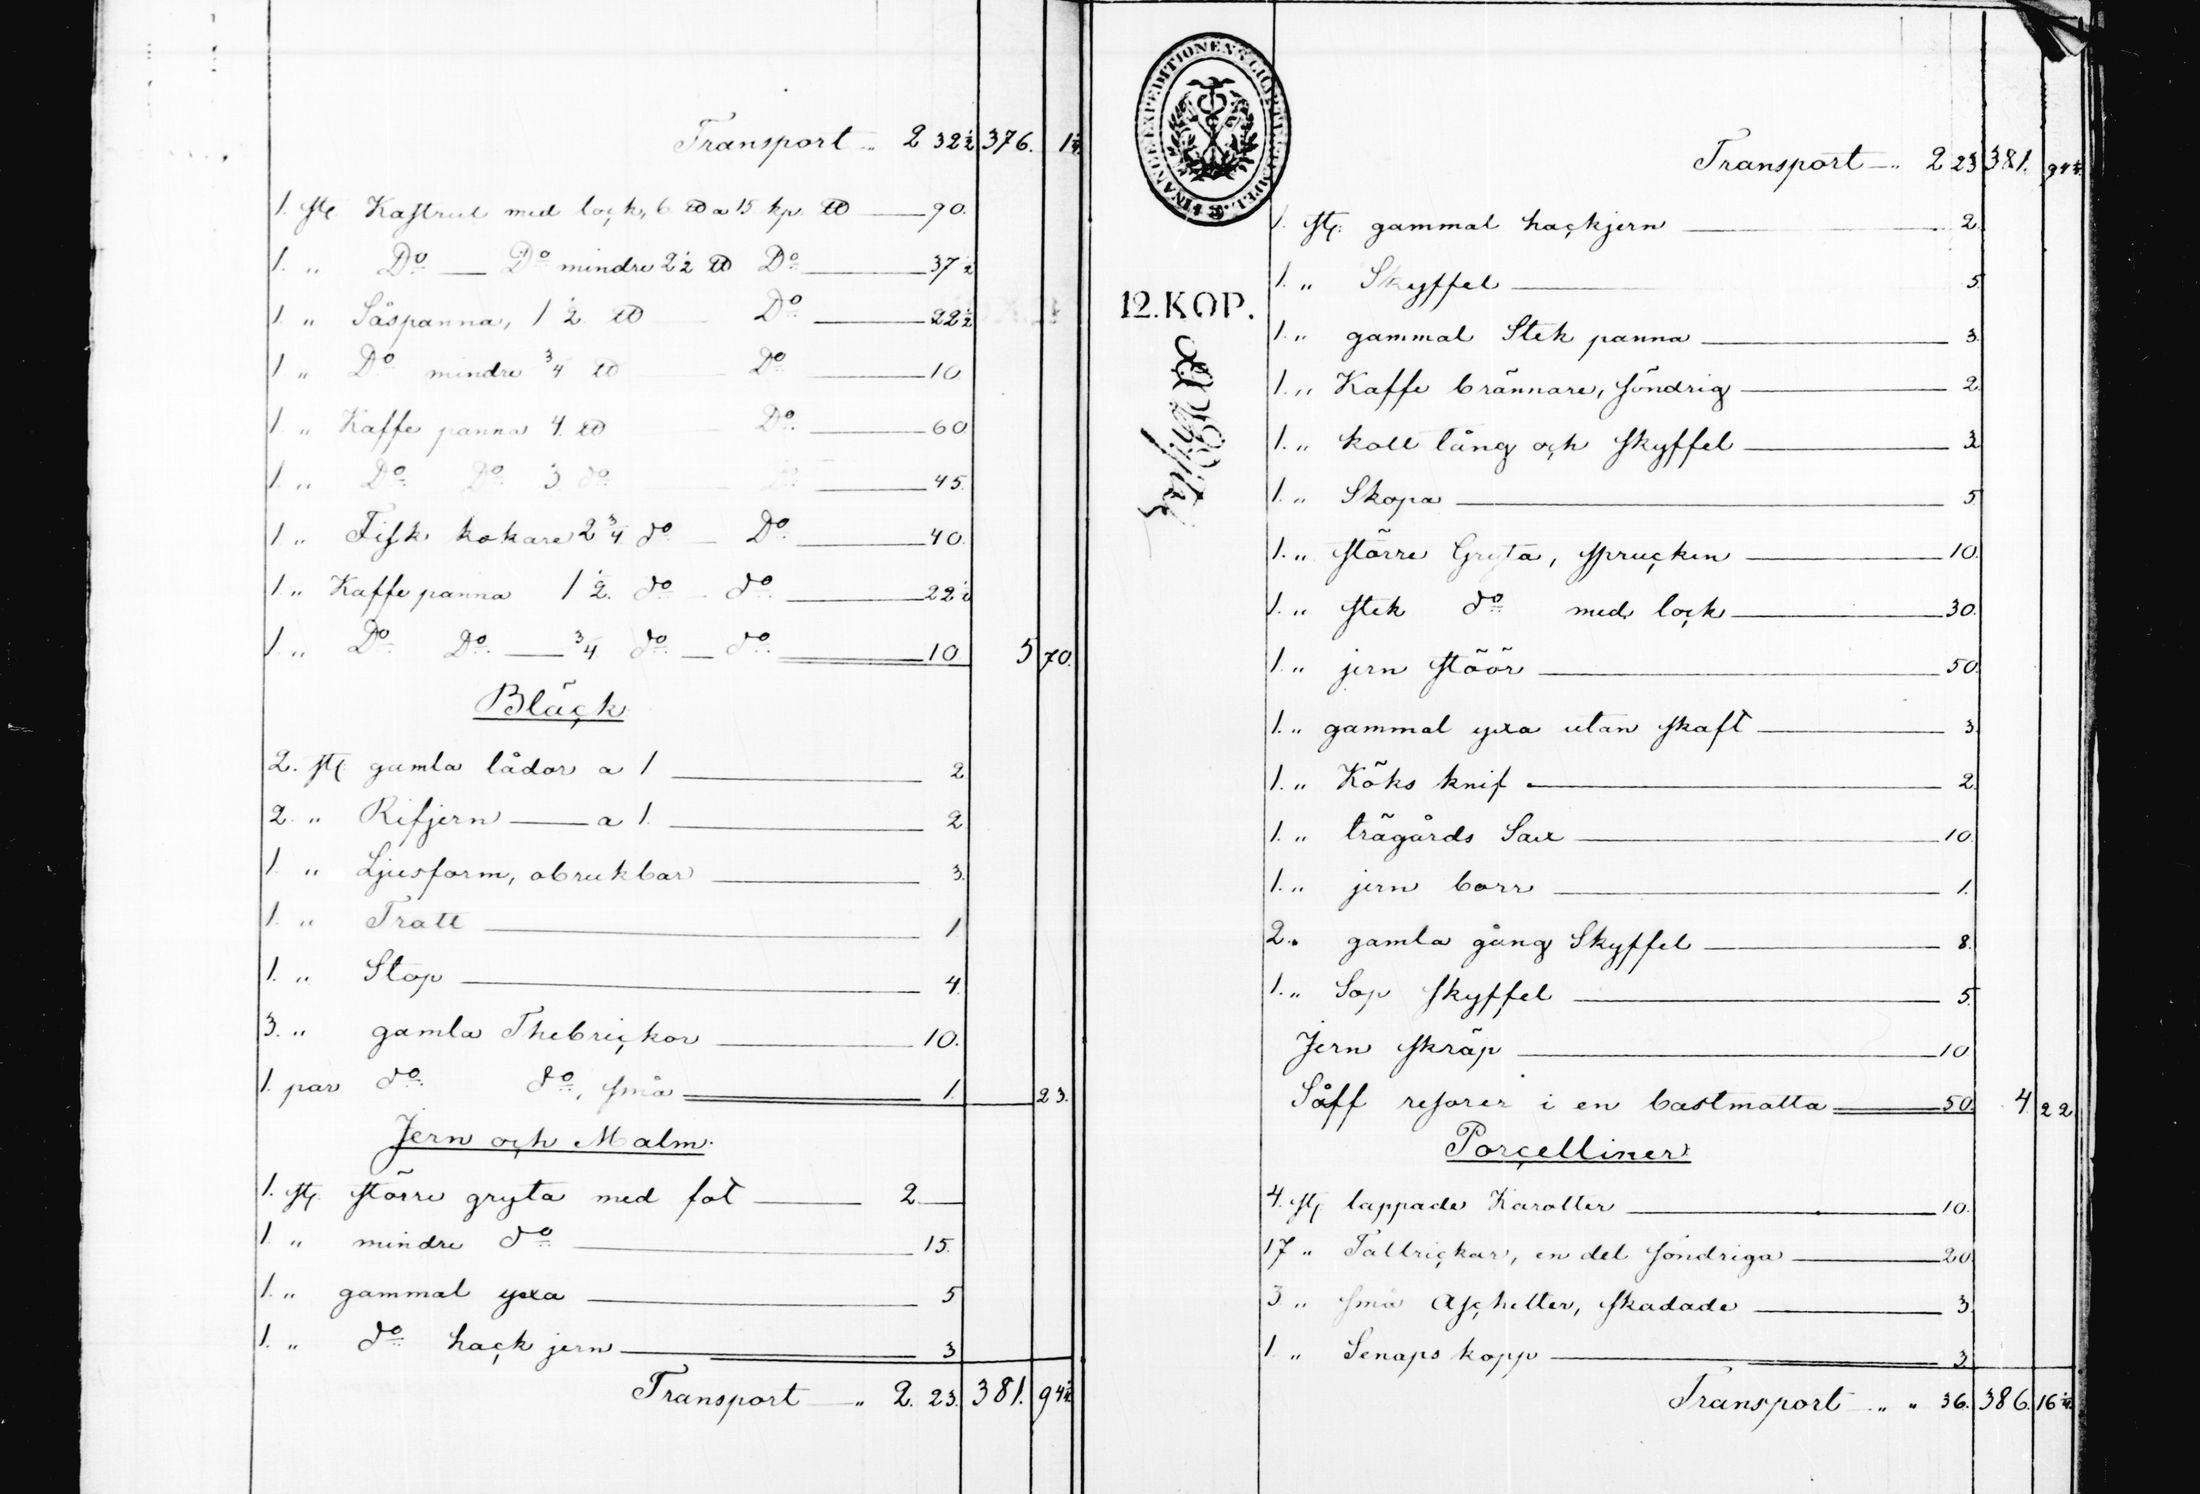 Transport „ 2 32½ 376. 1¼
1. st. Kastrul med lock, 6 ℔ a 15 kp. ℔ 90.
1. „ Do Do mindre 2½ ℔ Do 37½
1. „ Såspanna, 1½ ℔ Do 22½
1. „ Do mindre ¾ ℔ Do 10
1. „ Kaffe panna 4. ℔ Do 60
1. „ Do Do 3 do Do 45.
1. „ Fisk kokare 2¾ do Do 40.
1. „ Kaffe panna 1½. do do 22½
1. „ Do Do ¾ do do 10 5 70.
Bläck
2. st. gamla lådor a 1 2
2. „ Rifjern a 1. 2
1 „ Ljusform, obrukbar 3.
1. „ Tratt 1.
1. „ Stop 4.
3. „ gamla Thebrickor 10.
1. par do do, små 1. 23.
Jern och Malm.
1. st. större gryta med fot 2
1 „ mindre do 15.
1. „ gammal yxa 5
1. „ do hack jern 3
Transport „ 2. 23. 381. 94¼
FINANCE EXPEDITIONENS CHARTÆ STEMPEL.
12. KOP.
Transport „ 2 23 381. 94¼
1. st. gammal hackjern 2.
1. „ Skyffel 5.
1. „ gammal Stek panna 3.
1. „ Kaffe brännare, söndrig 2
1. „ koll tång och skyffel 3
1. „ Skopa 5
1. „ större Gryta, sprucken 10.
1. „ stek do med lock 30.
1. „ jern stöör 50.
1. „ gammal yxa utan skaft 3.
1. „ Köks knif 2.
1. „ trägårds Sax 10.
1. „ jern borr 1.
2. „ gamla gång Skyffel 8.
1. „ Sop skyffel 5.
Jern skräp 10
Såff resorer i en bastmatta 50. 4 22
Porcelliner
4. st. lappade Karotter 10.
17 „ Tallrickar, en del söndriga 20
3 „ små Aschetter, skadade 3.
1 „ Senaps kopp 3
Transport „ „ 36. 386. 16¼